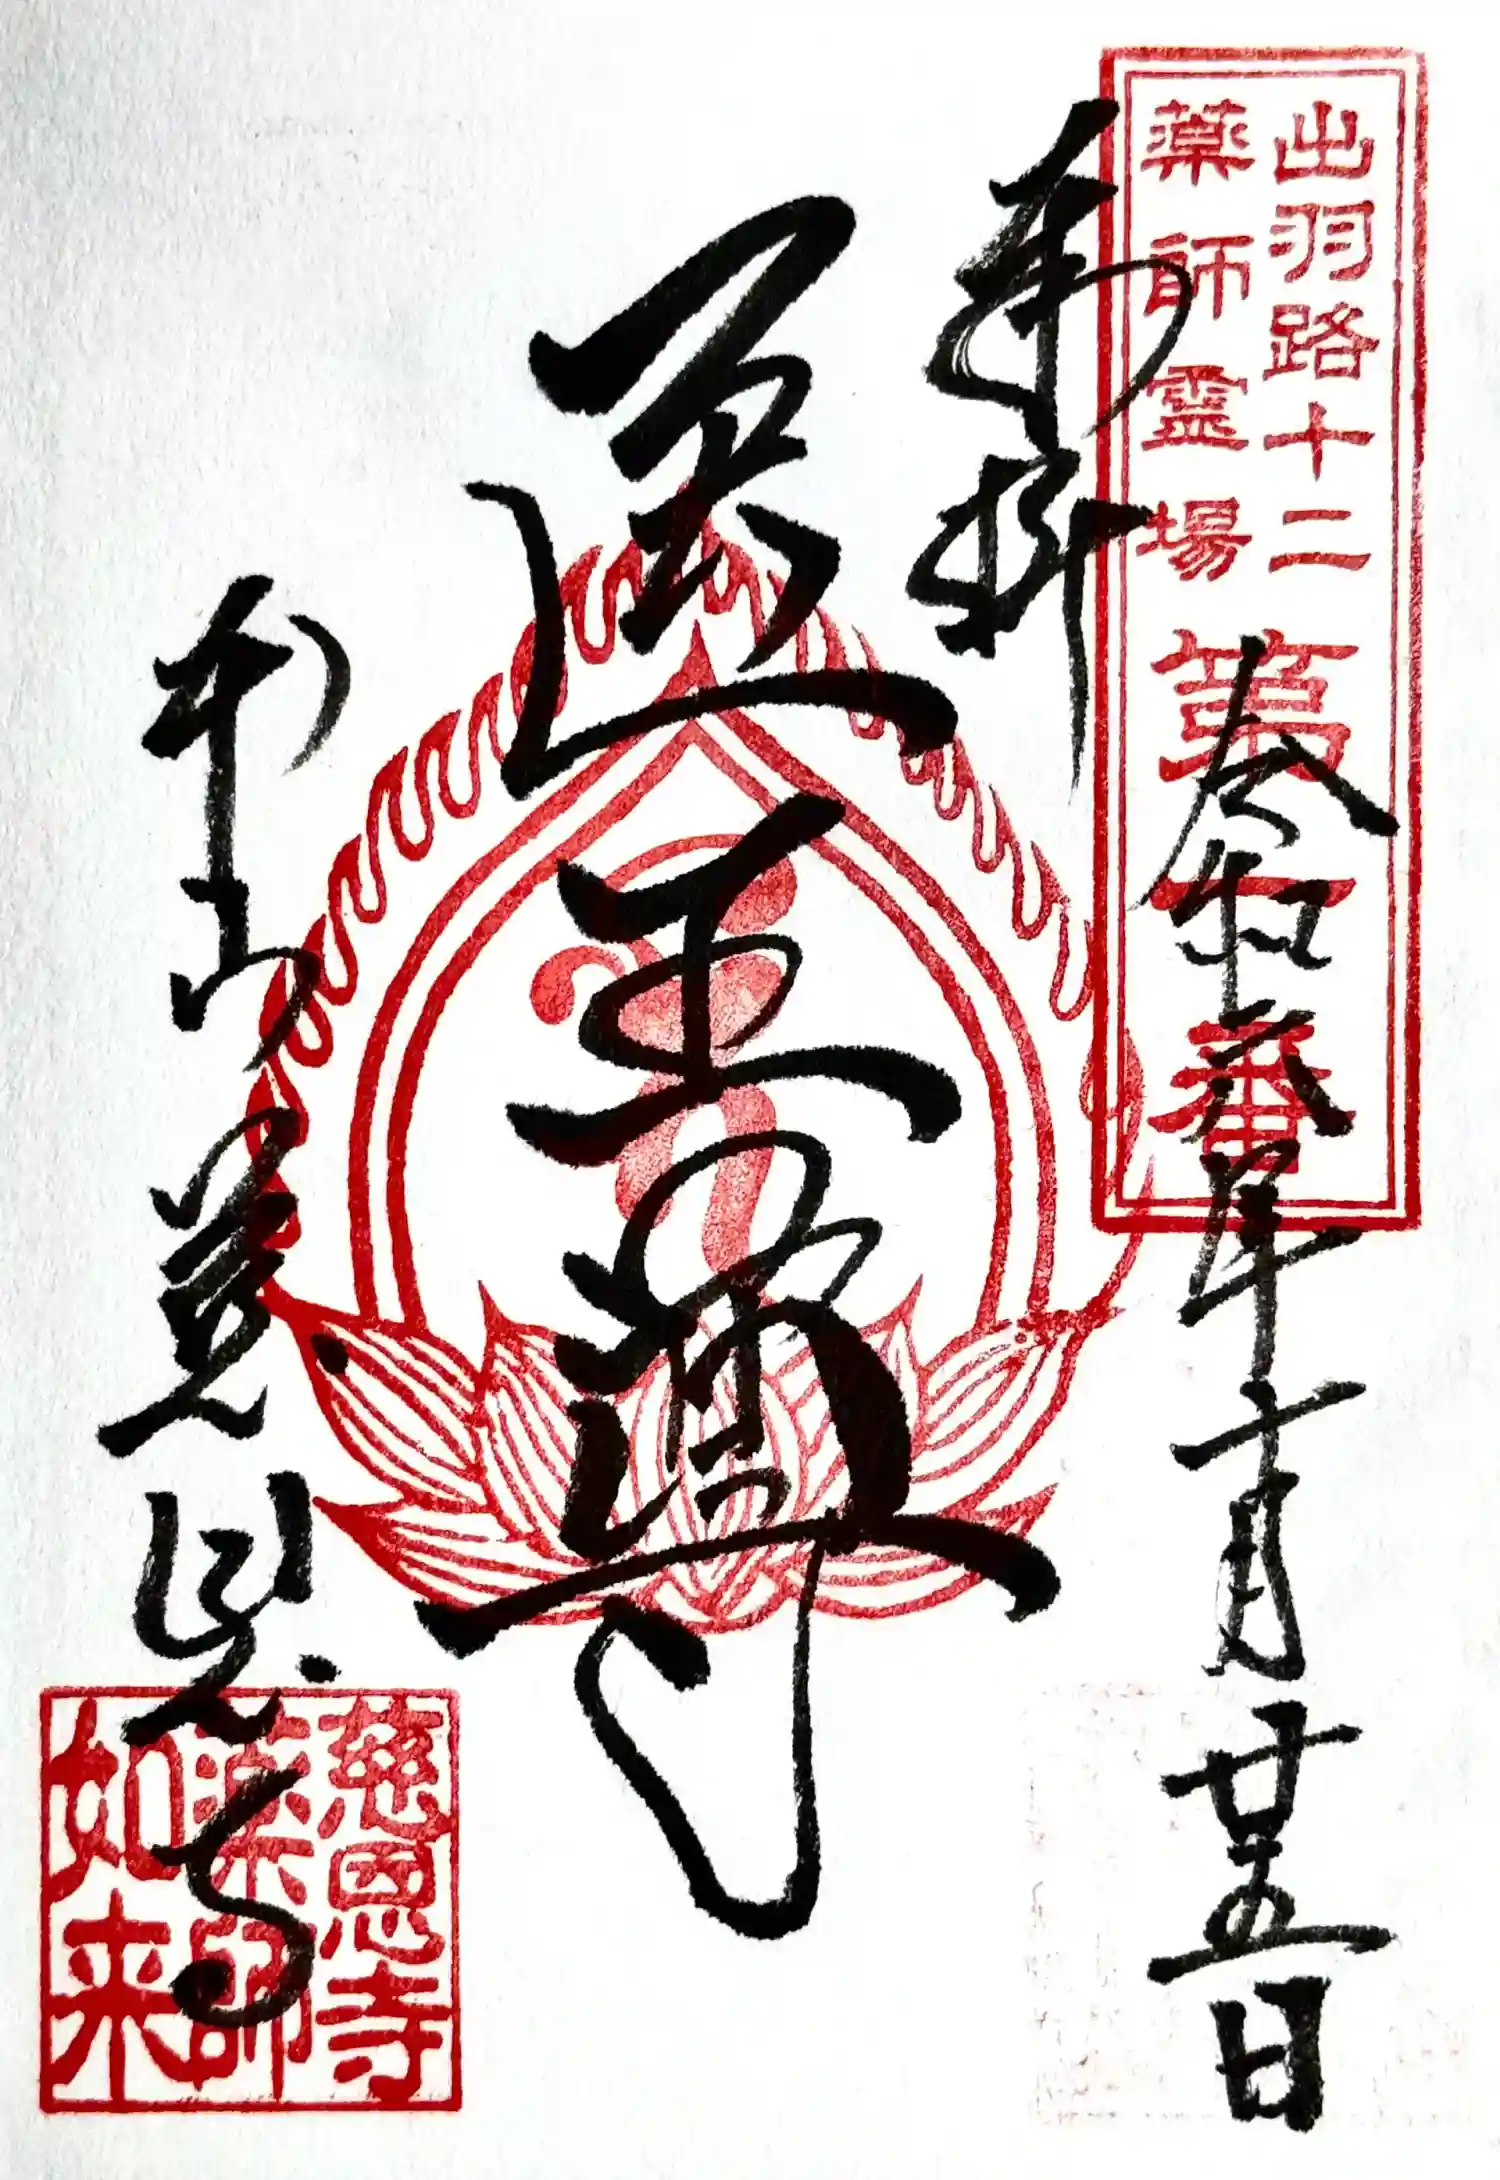 出羽路十二
薬師霊場
第一番
令和六年十月廿五日
奉拝
医王尊
本山慈恩寺
慈恩寺
薬師
如来